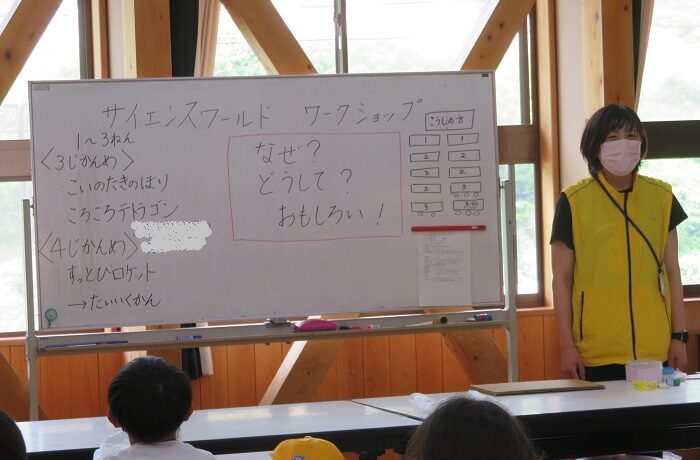 サイエンスワールド ワークショップ
1～3ねん
<3じかんめ>
こいのたきのぼり
ころころテトラゴン
<4じかんめ>
すっとびロケット
→たいいくかん
なぜ？
どうして？
おもしろい！
こうしの方
1 1
2 2
2 2
2 3
3